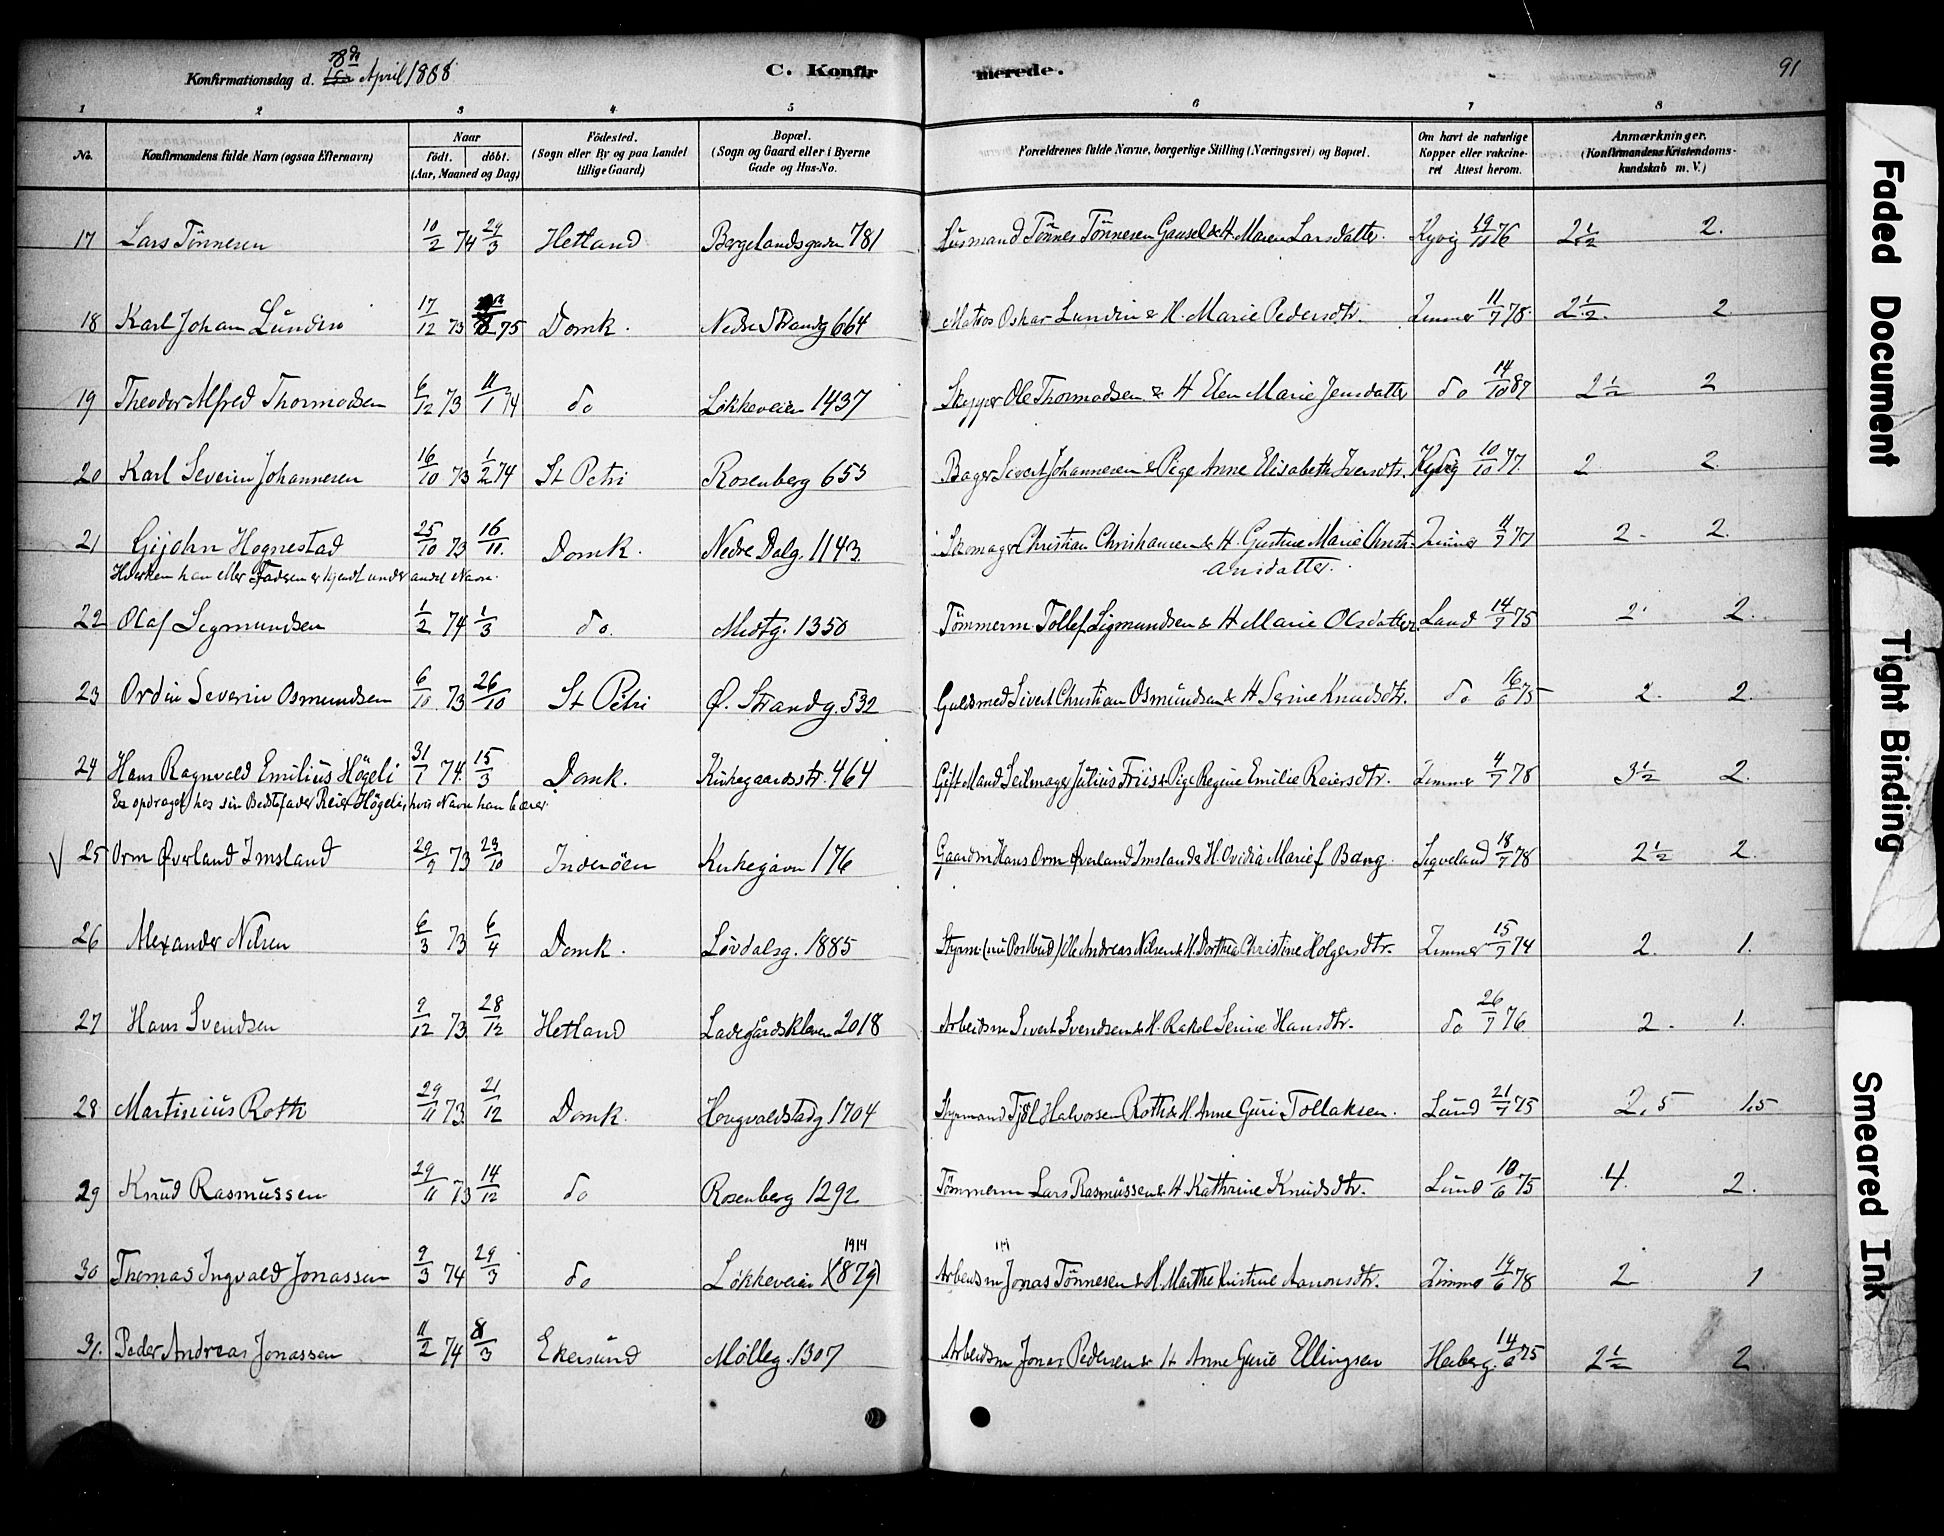 Konfirmationsdag d. 8de April 1888
C. Konfirmerede.
91
1 2 3 4 5 6 7 8
No. Konfirmandens fulde Navn (ogsaa Efternavn) Naar født. døbt. (Aar, Maaned og Dag) Födested. (Sogn eller By og paa Landet tillige Gaard) Bopæl. (Sogn og Gaard eller i Byerne Gade og Hus-No. Forældrenes fulde Navne, borgerlige Stilling (Næringsvei) og Bopæl. Om havt de naturlige Kopper eller vakcineret Attest herom. Anmærkninger. (Konfirmandens Kristendomskundskab m. V.)
17 Lars Tönnesen 10/2 74 29/3 Hetland Bergelandsgaden 781 Lüsmand Tönnes Tönnesen Gausel & H. Maren Larsdatter Kyvig 19/11 76 2 1/2 2.
18 Karl Johan Lündin 17/12 73 75 Domk. Nedre Strandg 664 Matros Oskar Lundin & H. Marie Pedersdtr. Zimmer 11/7 78. 2 1/2. 2
19 Theodor Alfred Thormodsen 6/12 73 11/1 74 do Lökkeveien 1437 Skipper Ole Thormodsen & H Elen Marie Jensdatter do 14/10 87 2 1/2 2
20 Karl Severin Johannesen 16/10 73 1/2 74 St Petri Rosenberg 653 Bager Sivert Johannesen & Pige Anne Elisabeth Iversdtr. Kyvig 10/10 77. 2 2.
21 Gijohn Hognestad 25/10 73 16/11. Domk. Nedre Dalg. 1143. Skomager Christian Christiansen & H. Gustine Marie Christiansdatter. Zimmer 11/7 77 2. 2.
Hverken han eller Faderen er kjendt under andet Navn.
22 Olaf Sigmundsen 1/2 74 1/3 do. Midtg. 1350 Tömmerm. Tollef Sigmundsen & H Marie Olsdatter Lund 14/7 75 2. 2.
23 Ordin Severin Osmundsen 6/10 73 26/10 St Petri Ø. Strandg. 532 Guldsmed Sivert Christian Osmündsen & H Serine Knudsdtr. do 16/6 75 2. 2.
24 Hans Ragnvald Emilius Högeli 31/1 74. 15/3 Domk. Kirkegaardsstr. 464 Gift Mand Seilmager Julius Friis & Pige Regine Emilie Reiersdtr. Zimmer 4/7 78 3 1/2 2.
Er opdraget hos sin Bedstefader Reier Högeli, hvis Navn han bærer
25 Orm Øverland Imsland 29/9 73 23/10 Inderöen Kirkegaven 176 Gaardm Hans Orm Øverland Imsland & H. Ovidia Marie f Bang. Sigveland 18/7 78 2 1/2 2.
26 Alexander Nilsen 6/3 73 6/4 Domk. Lövdalsg. 1885 Styrm. (nu Postbud) Ole Andreas Nilsen & H. Dorthea Christine Holgersdtr. Zimmer 15/7 74 2. 1.
27 Hans Svendsen 9/12 73 28/12 Hetland Ladegårdskleven 2018 Arbeidsm Sivert Svendsen & H. Rakel Serine Hansdtr. do 26/7 76 2. 1.
28 Martinius Roth 29/11 73 21/12 Domk. Hougvaldstadg 1704 Styrmand Tjöl Halvorsen Roth & H. Anne Guri Tollaksen. Lund 21/7 75 2,5 1,5
29 Knüd Rasmüssen 29/11 73 14/12 do Rosenberg 1292 Tömmerm Lars Rasmüssen & H Kathrine Knudsdtr. Lund 10/6 75 4. 2.
30 Thomas Ingvald Jonassen 9/3 74 29/3 do Lökkeveien 1914 (1879) Arbeidsm Jonas Tönnesen & H. Marthe Kristine Aanonsdtr. Zimmer 19/6 78 2 1
31. Peder Andreas Jonassen 11/2 74 8/3 Ekersund Mölleg. 1307 Arbeidsm Jonas Pedersen & H Anne Gurie Ellingsen Heiberg. 14/6 75 2 1/2 2.
Faded Document
Tight Binding
Smeared Ink